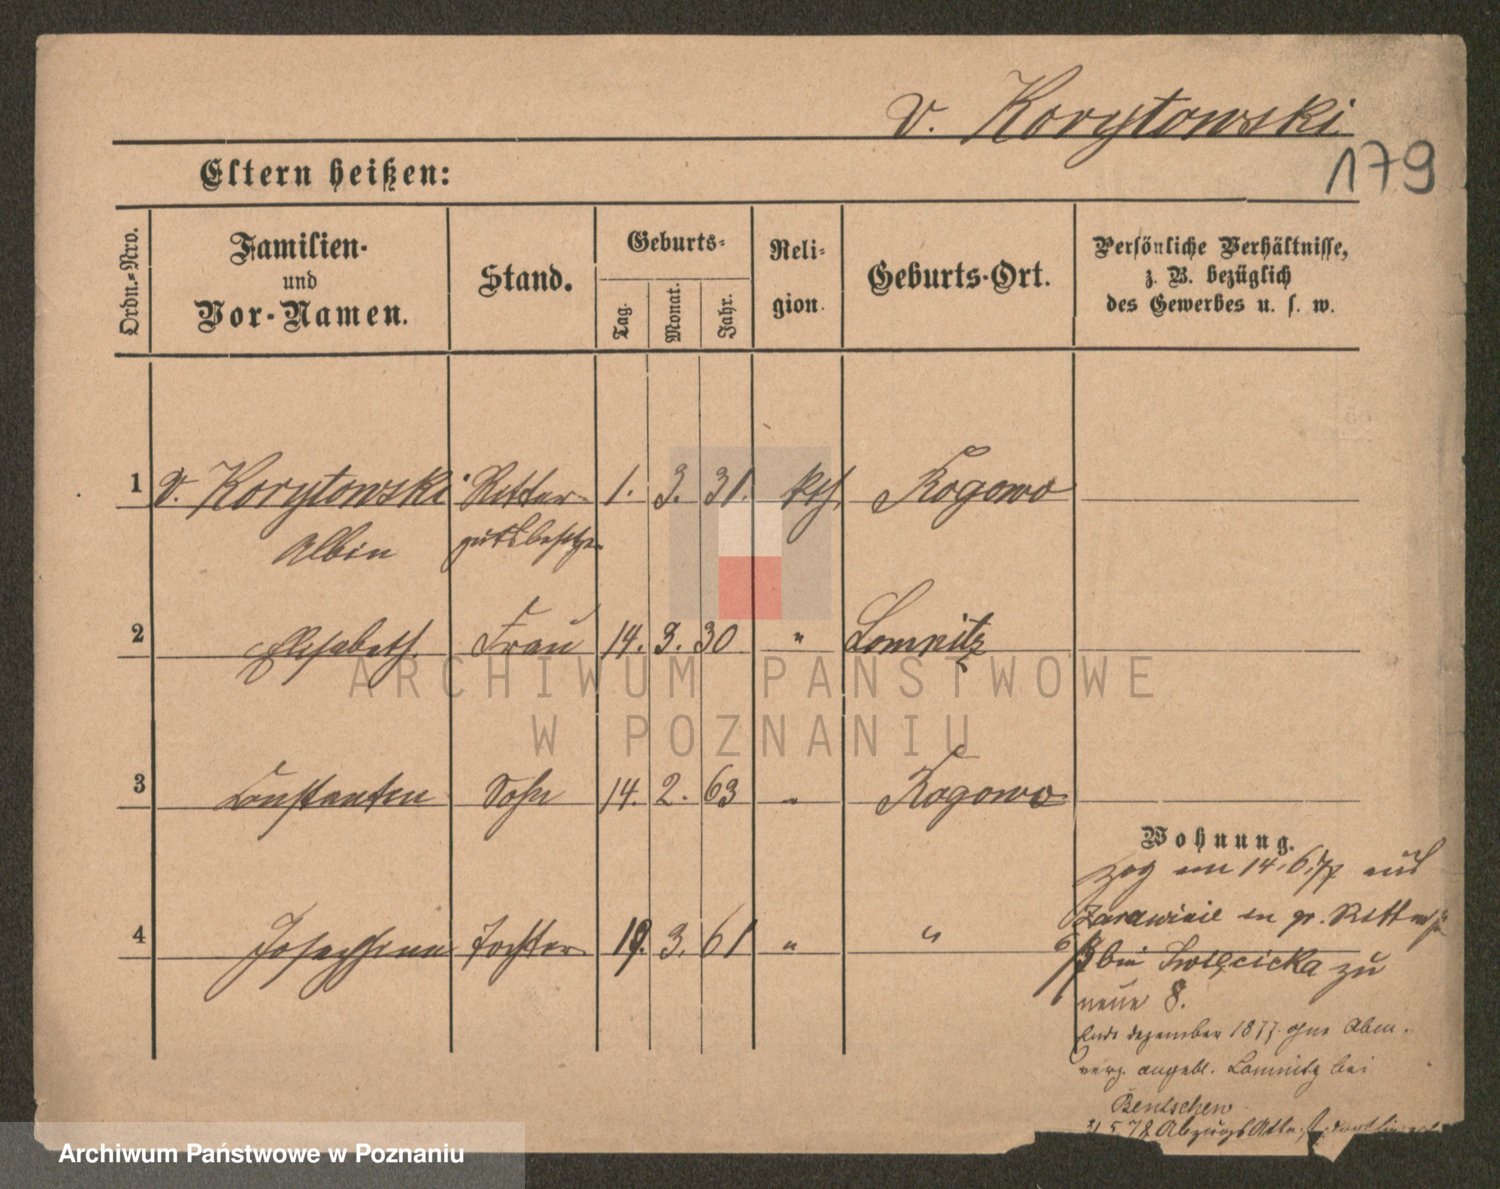 v. Korytowski
179
Eltern heißen:
Ordn.-Nro.
Familien-
und
Vor-Namen.
Stand.
Geburts-
Tag.
Monat.
Jahr.
Reli-
gion.
Geburts-Ort.
Persönliche Verhältnisse,
z. B. bezüglich
des Gewerbes u. s. w.
1 v. Korytowski Ritter- 1. 3. 31. kth. Rogowo
Albin gutsbesitzer
2 Elisabeth Frau 14. 9. 30 " Lomnitz
3 Constantin Sohn 14. 2. 63 " Rogowo
Wohnung.
zog am 14.6.77 aus
in gr. Ritterstr
4 Josephine Tochter 19. 3. 61 " "
bei Swięcicka zu
neue 8.
Ende Dezember 1877 ohne Abm.
verz. angebl. Lomnitz bei
Bentschen
31 5 78 Abzugs Atte
ARCHIWUM PAŃSTWOWE
W POZNANIU
Archiwum Państwowe w Poznaniu